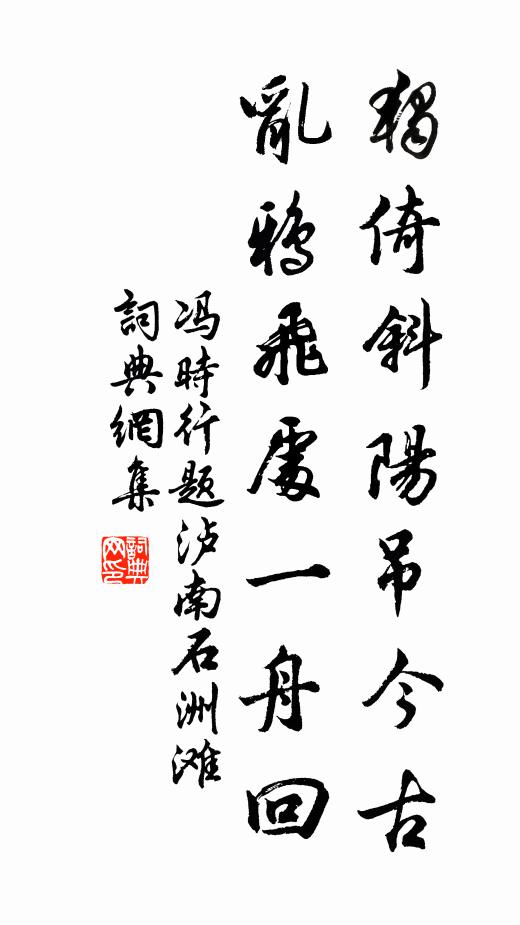 獨倚斜陽吊今古
亂鴉飛處一舟回
冯時行题泸南石洲滩
詞典網集
詞典网印